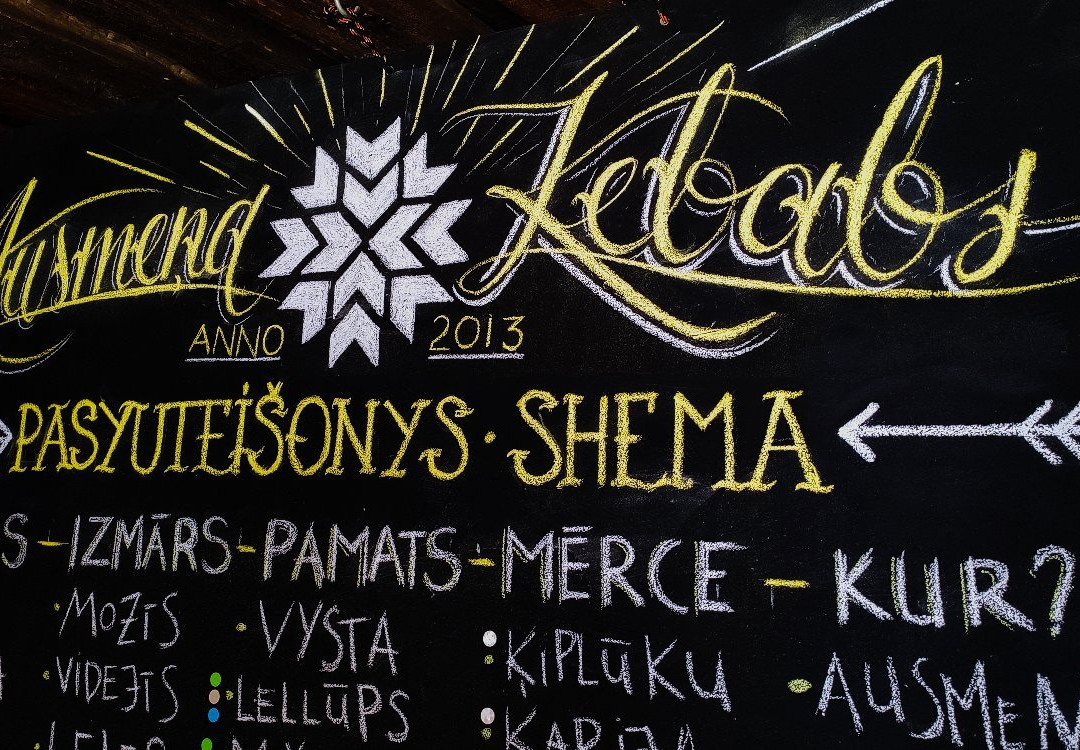 Ausmeņa Kebabs
ANNO 2013
PASYUTEIŠONYS · SHEMA
S - IZMĀRS - PAMATS - MĒRCE - KUR?
MOZĪS VYSTA ĶIPLŪKU AUSMEN
VIDEJĪS LELLŪPS